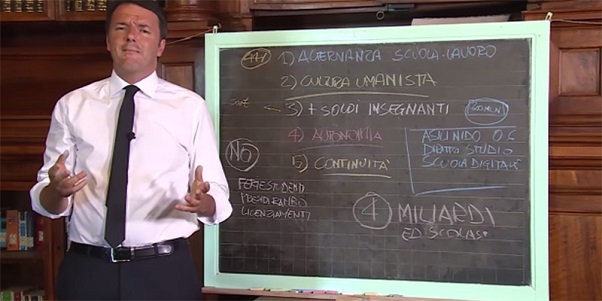 1) ALTERNANZA SCUOLA-LAVORO
2) CULTURA UMANISTA
3) + SOLDI INSEGNANTI
4) AUTONOMIA
5) CONTINUITA'
NO
PRESIDI RAMBO
LICENZIAMENTI
ASILI NIDO 0.6
DIRITTO STUDIO
SCUOLA DIGITALE
4 MILIARDI
ED. SCOLAS